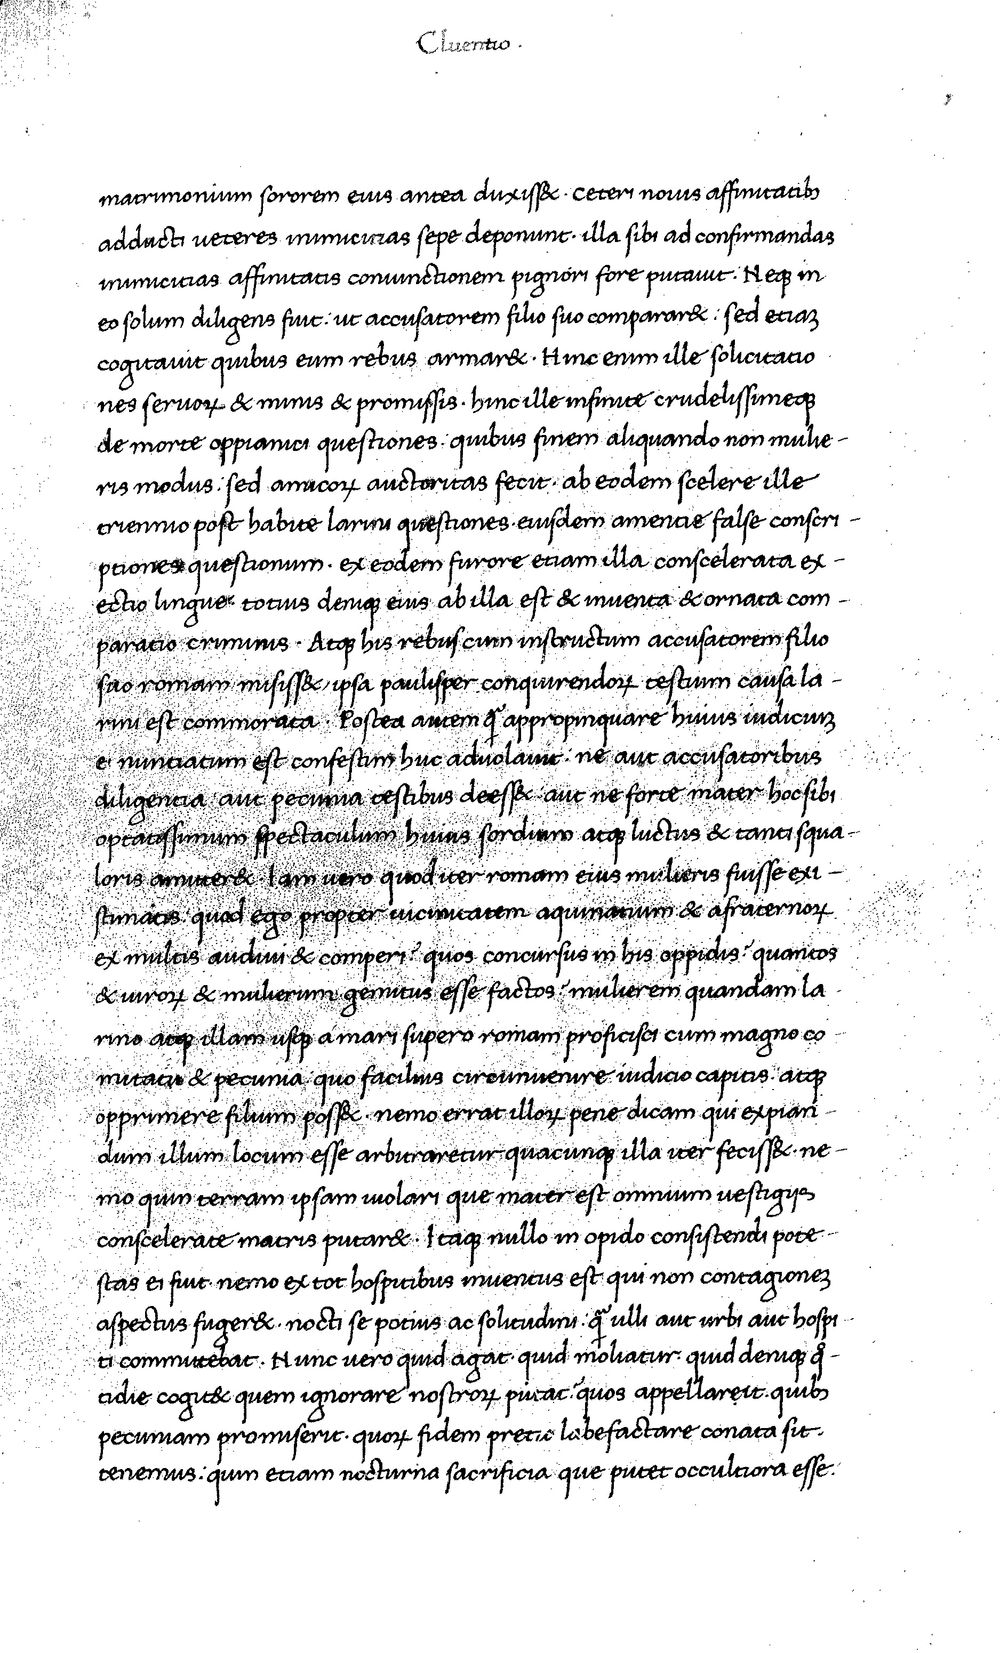 Cluentio ·
matrimonium sororem eius antea duxiss& · Ceteri nouis affinitatib;
adducti ueteres inimicitias sepe deponunt · illa sibi ad confirmandas
inimicitias affinitatis coniunctionem pignori fore putauit · Neq; in
eo solum diligens fuit : ut accusatorem filio suo comparar& : sed etiaʒ
cogitauit quibus eum rebus armar& · Hinc enim ille solicitatio
nes seruoꝝ & minis & promissis · hinc ille infinite crudelissimeq;
de morte oppianici questiones : quibus finem aliquando non mulie -
ris modus : sed amicoꝝ auctoritas fecit · ab eodem scelere ille
triennio post habite larini questiones · eiusdem amentie false conscri -
ptiones questionum · ex eodem furore etiam illa conscelerata ex -
ectio lingue : totius deniq; eius ab illa est & inuenta & ornata com -
paratio criminis · Atq; his rebus cum instructum accusatorem filio
suo romam misiss& , ipsa paulisper conquirendoꝝ testium causa la -
rini est commorata · Postea autem qͣ appropinquare huius iudiciuʒ
ei nuntiatum est confestim huc aduolauit · ne aut accusatoribus
diligentia : aut pecunia testibus deess& : aut ne forte mater hoc sibi
optatissimum spectaculum huius sordium atq; luctus & tanti squa -
loris amitter& · Iam uero quod iter romam eius mulieris fuisse exi -
stimatis : quod ego propter uicinitatem aquinatium & afraternoꝝ
ex multis audiui & comperi ? quos concursus in his oppidis ? quantos
& uiroꝝ & mulierum gemitus esse factos ? mulierem quandam la -
rino atq; illam usq; a mari supero romam proficisci cum magno co -
mitatu & pecunia quo facilius circumuenire iudicio capitis : atq;
opprimere filium poss& · nemo errat illoꝝ pene dicam qui expian -
dum illum locum esse arbitraretur quacunq; illa iter feciss& · ne -
mo quin terram ipsam uiolari que mater est omnium uestigijs
conscelerate matris putar& · Itaq; nullo in opido consistendi pote -
stas ei fuit · nemo ex tot hospitibus inuentus est qui non contagioneʒ
aspectus fuger& · nocti se potius ac solitudini : qͣ ulli aut urbi aut hospi -
ti committebat · Nunc uero quid agat · quid moliatur · quid deniq; q̊ -
tidie cogit& quem ignorare nostroꝝ putat ? quos appellarit · quib;
pecuniam promiserit · quoꝝ fidem pretio labefactare conata sit ·
tenemus : quin etiam nocturna sacrificia que putet occultiora esse :